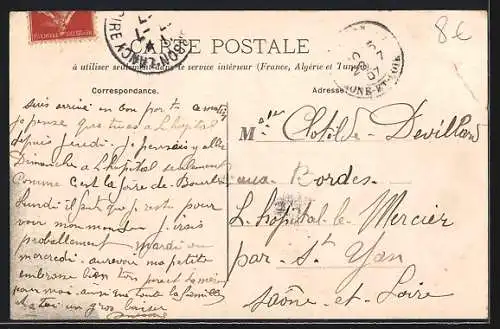 CARTE POSTALE
à utiliser seulement dans le service intérieur (France, Algérie et Tunisie)
Correspondance.
Adresse
8€
suis arrivé en bon port ce matin
je pense que tu es à L'hopital
depuis jeudi. je pensais y aller
Dimanche a L'hopital seulement
comme c'est la foire de Bourbon
Lundi il faut que je reste pour
voir mon monde j irais
probablement mardi ou
mercredi. au revoir ma petite
embrasse bien ton
pour moi ainsi que toute la famille
et a toi un gros baiser
Melle Clotilde Devillard
aux Bordes
L. hopital-le-Mercier
par. St Yan
Saône-et-Loire